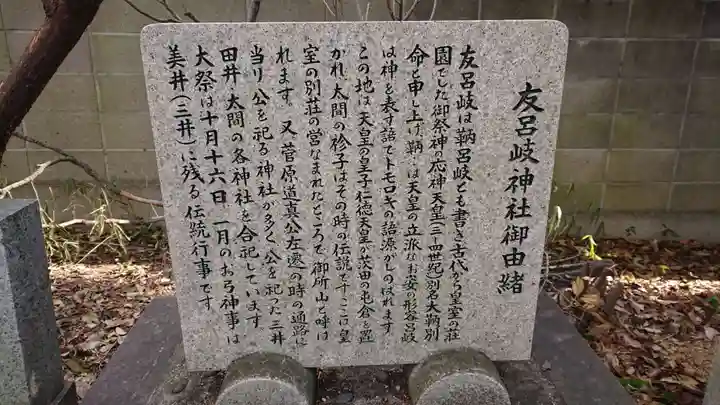 友呂岐神社御由緒
友呂岐は鞆呂岐とも書き古代から皇室の荘
園でした御祭神の応神天皇(三―四世紀)別名大鞆別
命と申し上げ、鞆とは天皇の立派なお姿の形容呂岐
は神を表す語でトモロキの語源がしのばれます
この地は天皇の皇子仁徳天皇が茨田の屯倉を置
かれ、太間の衿子はその時の伝説です。ここは皇
室の別荘の営なまれたところで御所山と呼ば
れます。又菅原道真公左遷の時の通路に
当り、公を祀る神社が多く、公を祀った三井
田井・太間の各神社を合祀しています
大祭は十月十六日、一月のお弓神事は
美井(三井)に残る伝統行事です